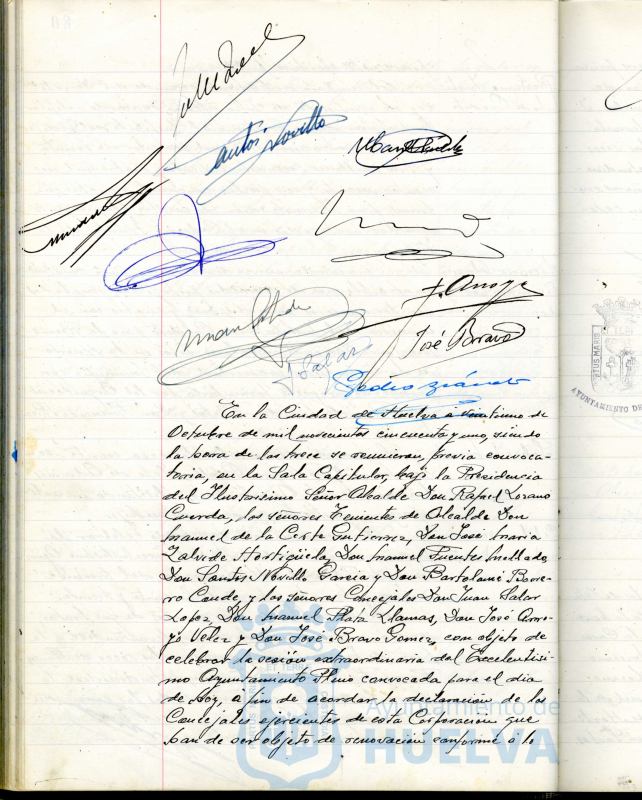 Santos Novillo
J. Arroyo
José Bravo
J Salar
En la Ciudad de Huelva a veintiuno de
Octubre de mil novecientos cincuenta y uno, siendo
la hora de las trece se reunieron, previa convoca-
toria, en la Sala Capitular, bajo la Presidencia
del Ilustrisimo Señor Alcalde Don Rafael Lozano
Cuerda, los señores Tenientes de Alcalde Don
Manuel de la Corte Gutierrez, Don José Maria
Zalvide Hortigüela, Don Manuel Fuentes Mellado,
Don Santos Novillo Garcia y Don Bartolomé Borre-
ro Conde, y los señores Concejales Don Juan Salar
Lopez, Don Manuel Plata Llamas, Don José Arro-
yo Velez y Don José Bravo Gomez, con objeto de
celebrar la sesión extraordinaria del Excelentisi-
mo Ayuntamiento Pleno convocada para el dia
de hoy, a fin de acordar la declaración de los
Concejales ejercientes de esta Corporación que
han de ser objeto de renovación conforme a lo
Ayuntamiento de
HUELVA
AYUNTAMIENTO DE